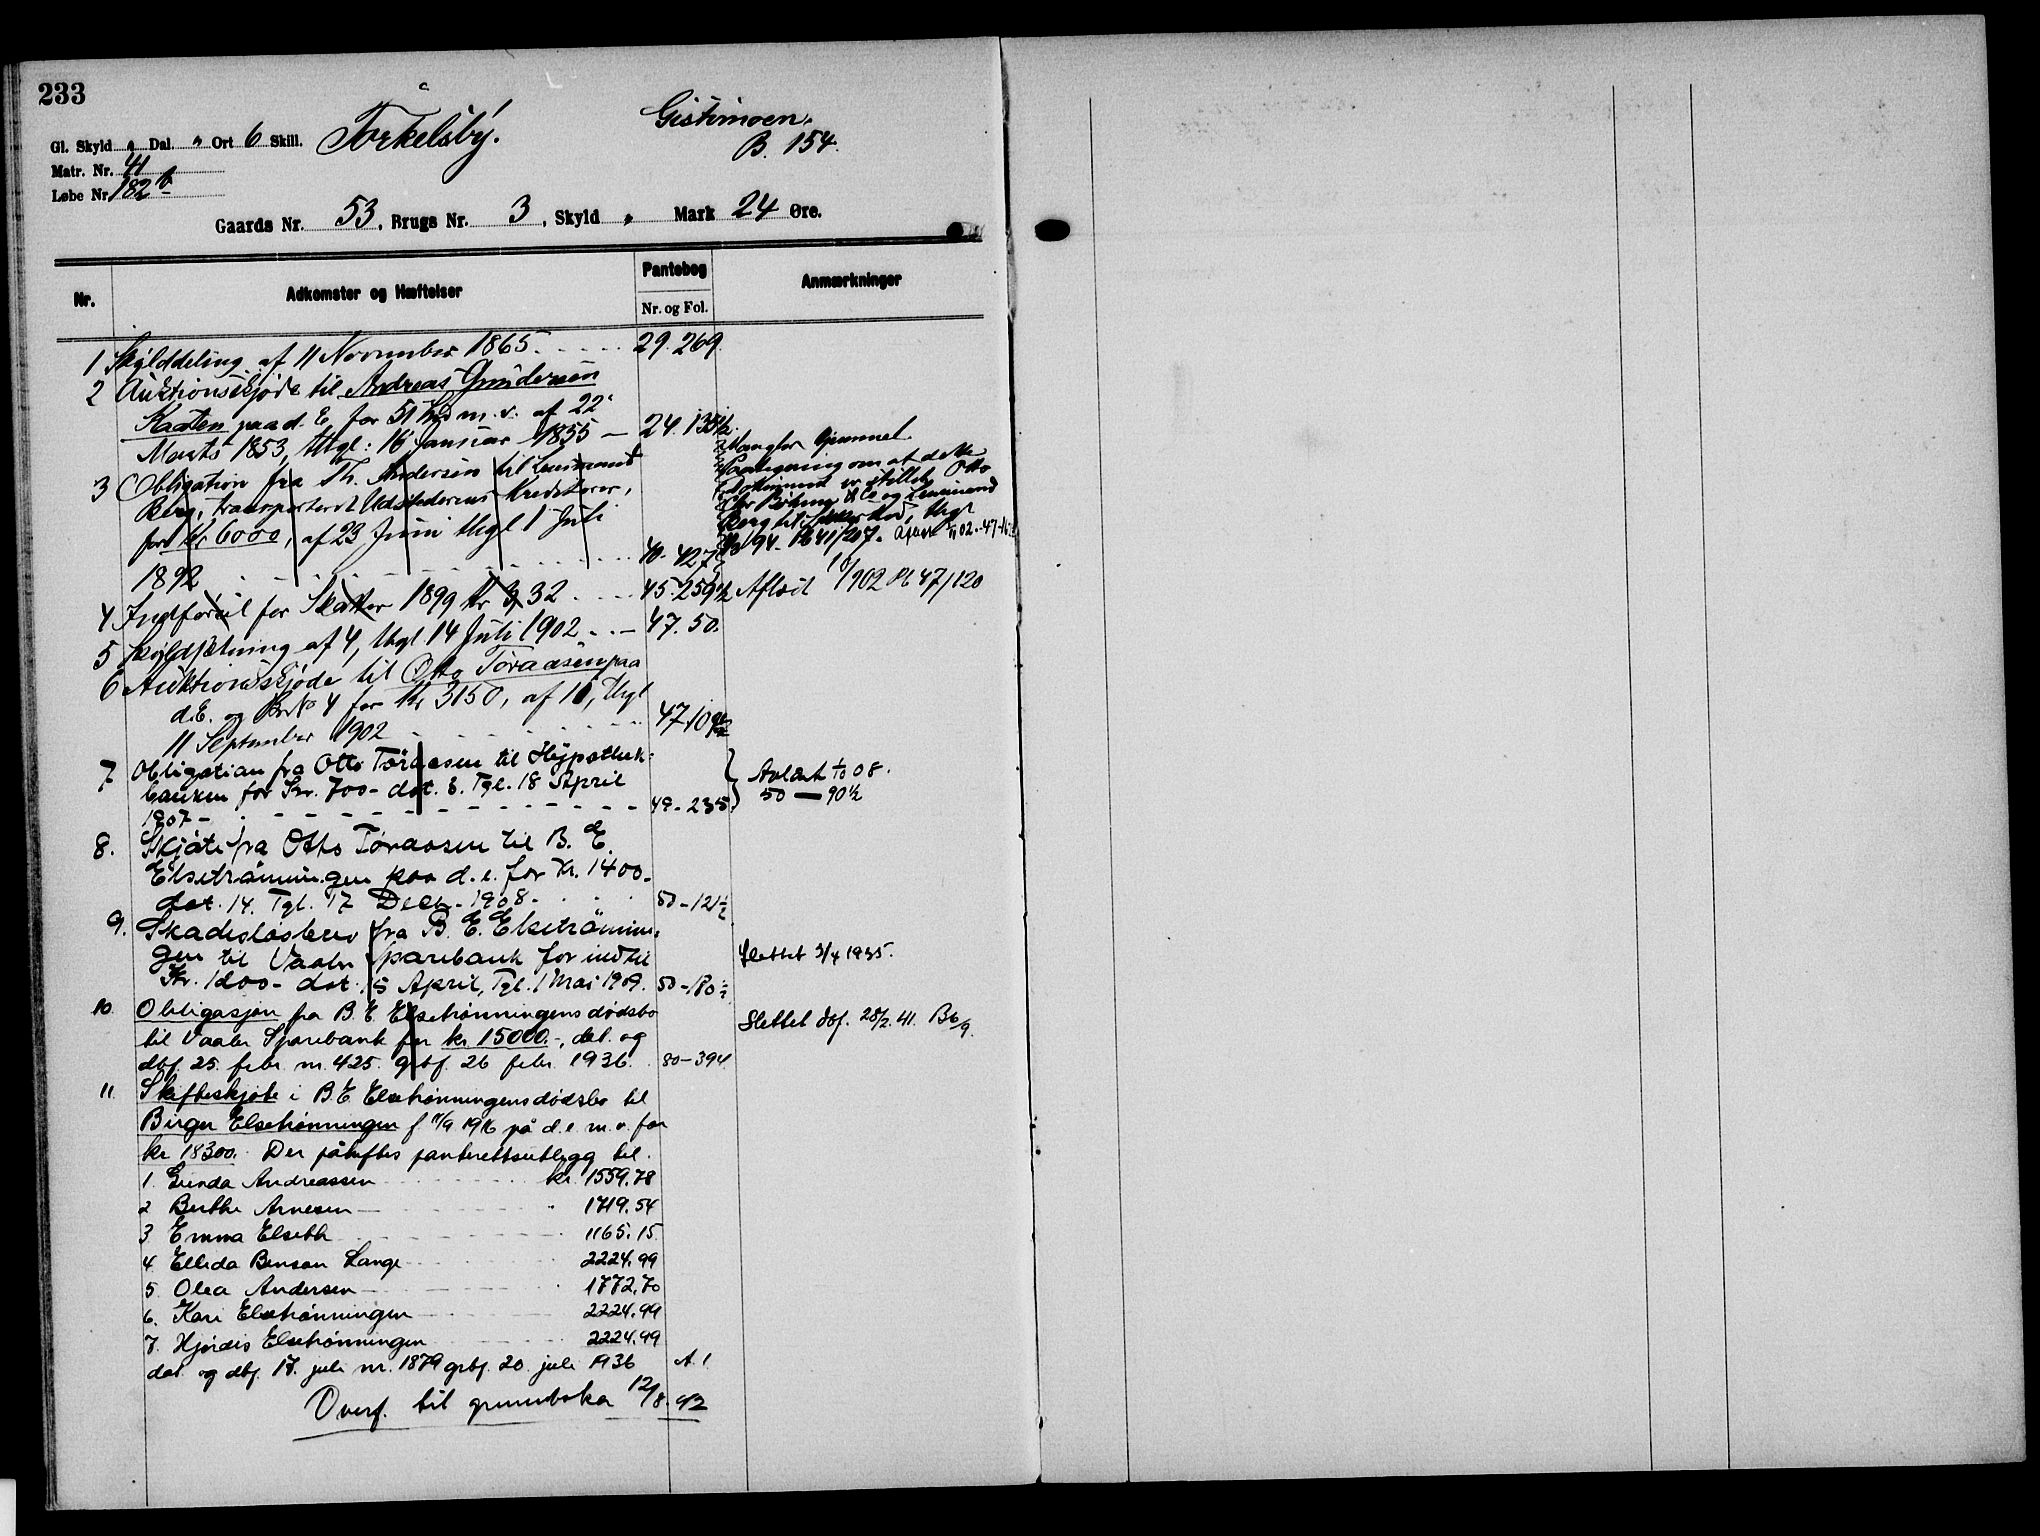 233
Gl. Skyld " Dal. " Ort 6 Skill. Torkelsby. Gistimoen.
B. 154.
Matr. Nr. 41
Løbe Nr. 182 b
Gaards Nr. 53, Brugs Nr. 3, Skyld " Mark 24 Øre.
Nr. Adkomster og Hæftelser Pantebog Anmærkninger
Nr. og Fol.
1 Skylddeling af 11 November 1865. 29.269.
2 Auktionsskjøde til Andreas Gundersen
Kaaten paa d. E. for 51 m. v. af 22
Marts 1853, thgl: 16 Januar 1855 — 24.135½.
3 Obligation fra Th. Andersen til Lensmand
Berg, transporteret Udstederens Kreditorer,
for Kr 6000, af 23 Juni thgl 1 Juli
1892 40-427
Mangler Gjennel.
Paategning om at dette
Dokument er stillet Otto
Chr Böhme & Co og Lensmand
Berg til Sikkerhed, thgl
94- Pb 41/207. Aflæst 02.-47-
4 Indførsel for Skatter 1899 Kr 3,32 45.259½ Aflæst 1902 Pb 47/120
5 Skyldsætning af 4, thgl 14 Juli 1902 — 47.50.
6 Auktionsskjøde til Otto Töraasen paa
d. E. og Br No 4 for Kr 3150, af 10, thgl
11 September 1902 47.109½
7 Obligation fra Otto Töraasen til Hypothek-
banken for Kr. 700- dat. 6. Tgl. 18 April
1907- 49-235
Avlæst 1/10 08.
50 — 90½
8. Skjöte fra Otto Töraasen til B. E.
Elsetrönningen paa d. e. for Kr. 1400-
dat. 14. Tgl. 17 Decb-1908- 50-121½
9. Skadesløsbrev fra B. E. Elsetrönnin-
gen til Vaaler Sparebank for indtil
Kr. 1200- dat. 15 April, Tgl. 1 Mai 1909. 50-180½
Slettet 3/4 1935.
10. Obligasjon fra B. E. Elsetrønningens dødsbo
til Vaaler Sparebank for kr. 15000.-, dat. og
dbf. 25. febr. nr. 425. grbf. 26 febr. 1936. 80-394
Slettet dbf. 28/2. 41. B6/9.
11. Skifteskjøte i B. E. Elsetrønningens dødsbo til
Birger Elsetrønningen f 11/9 1916 på d. e. m. v. for
kr 18300.- Der påheftes panterettsutlegg til.
1. Gunda Andreassen kr. 1559.78
2 Berthe Arnesen — 1719.54
3 Emma Elseth 1165.15
4. Ellida Benson Lange 2224.99
5. Olea Andersen — 1772.70
6. Kari Elsetrønningen 2224.99
7. Hjørdis Elsetrønningen 2224.99
dat. og dbf. 17. juli nr. 1879 grbf. 20. juli 1936 A. 1
Overf. til grunnboka 12/8. 42